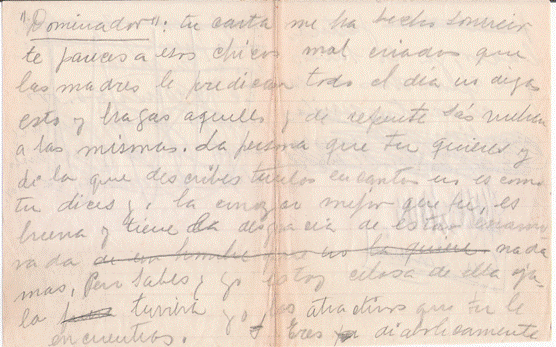 "Dominador": tu carta me ha hecho sonreir
te pareces a esos chicos mal criados que
las madres le predican todo el dia no digas
esto y hagas aquello y de repente zás vuelven
a las mismas. La persona que tu quieres y
di la que describes tantos encantos no es como
tu dices yo la conozco mejor que tu, es
buena y tiene la desgracia de estar enamo
rada de un hombre que no la quiere nada
mas, Pero sabes, yo estoy celosa de ella oja-
la tuviera yo los atractivos que tu le
encuentras. Eres diabolicamente